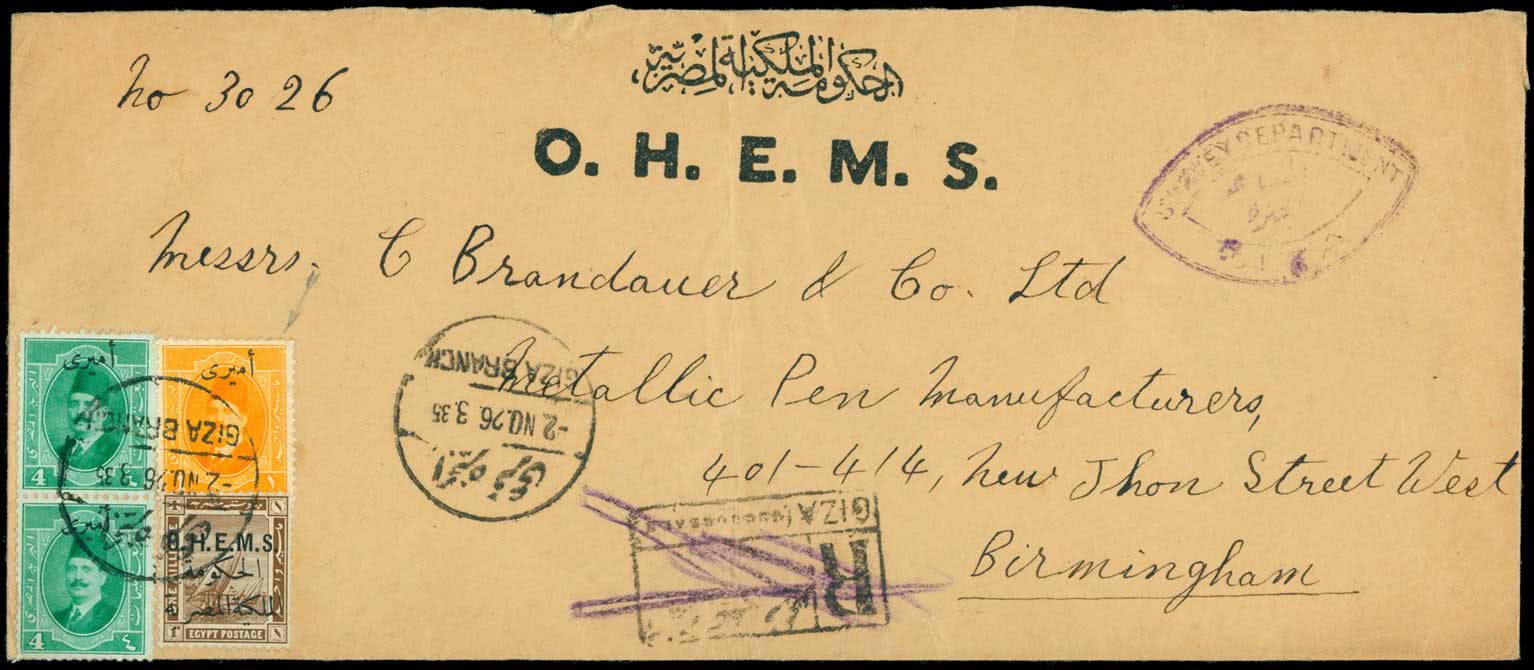 الحكومة الملكية المصرية
No 3026
O. H. E. M. S.
SURVEY DEPARTMENT
Messrs. C Brandauer & Co. Ltd
Metallic Pen Manufacturers,
401-414, New Jhon Street West
Birmingham
GIZA BRANCH
-2 NO.26 3.35
أميرى
4 ٤
أميرى
GIZA BRANCH
-2 NO.26 3.35
أميرى
4 ٤
O.H.E.M.S.
الحكومة
الملكية المصرية
EGYPT POSTAGE
GIZA
R